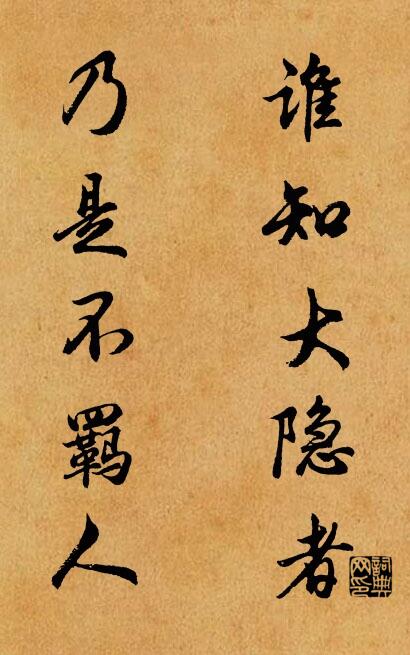 谁知大隐者
乃是不羁人
詞典网印